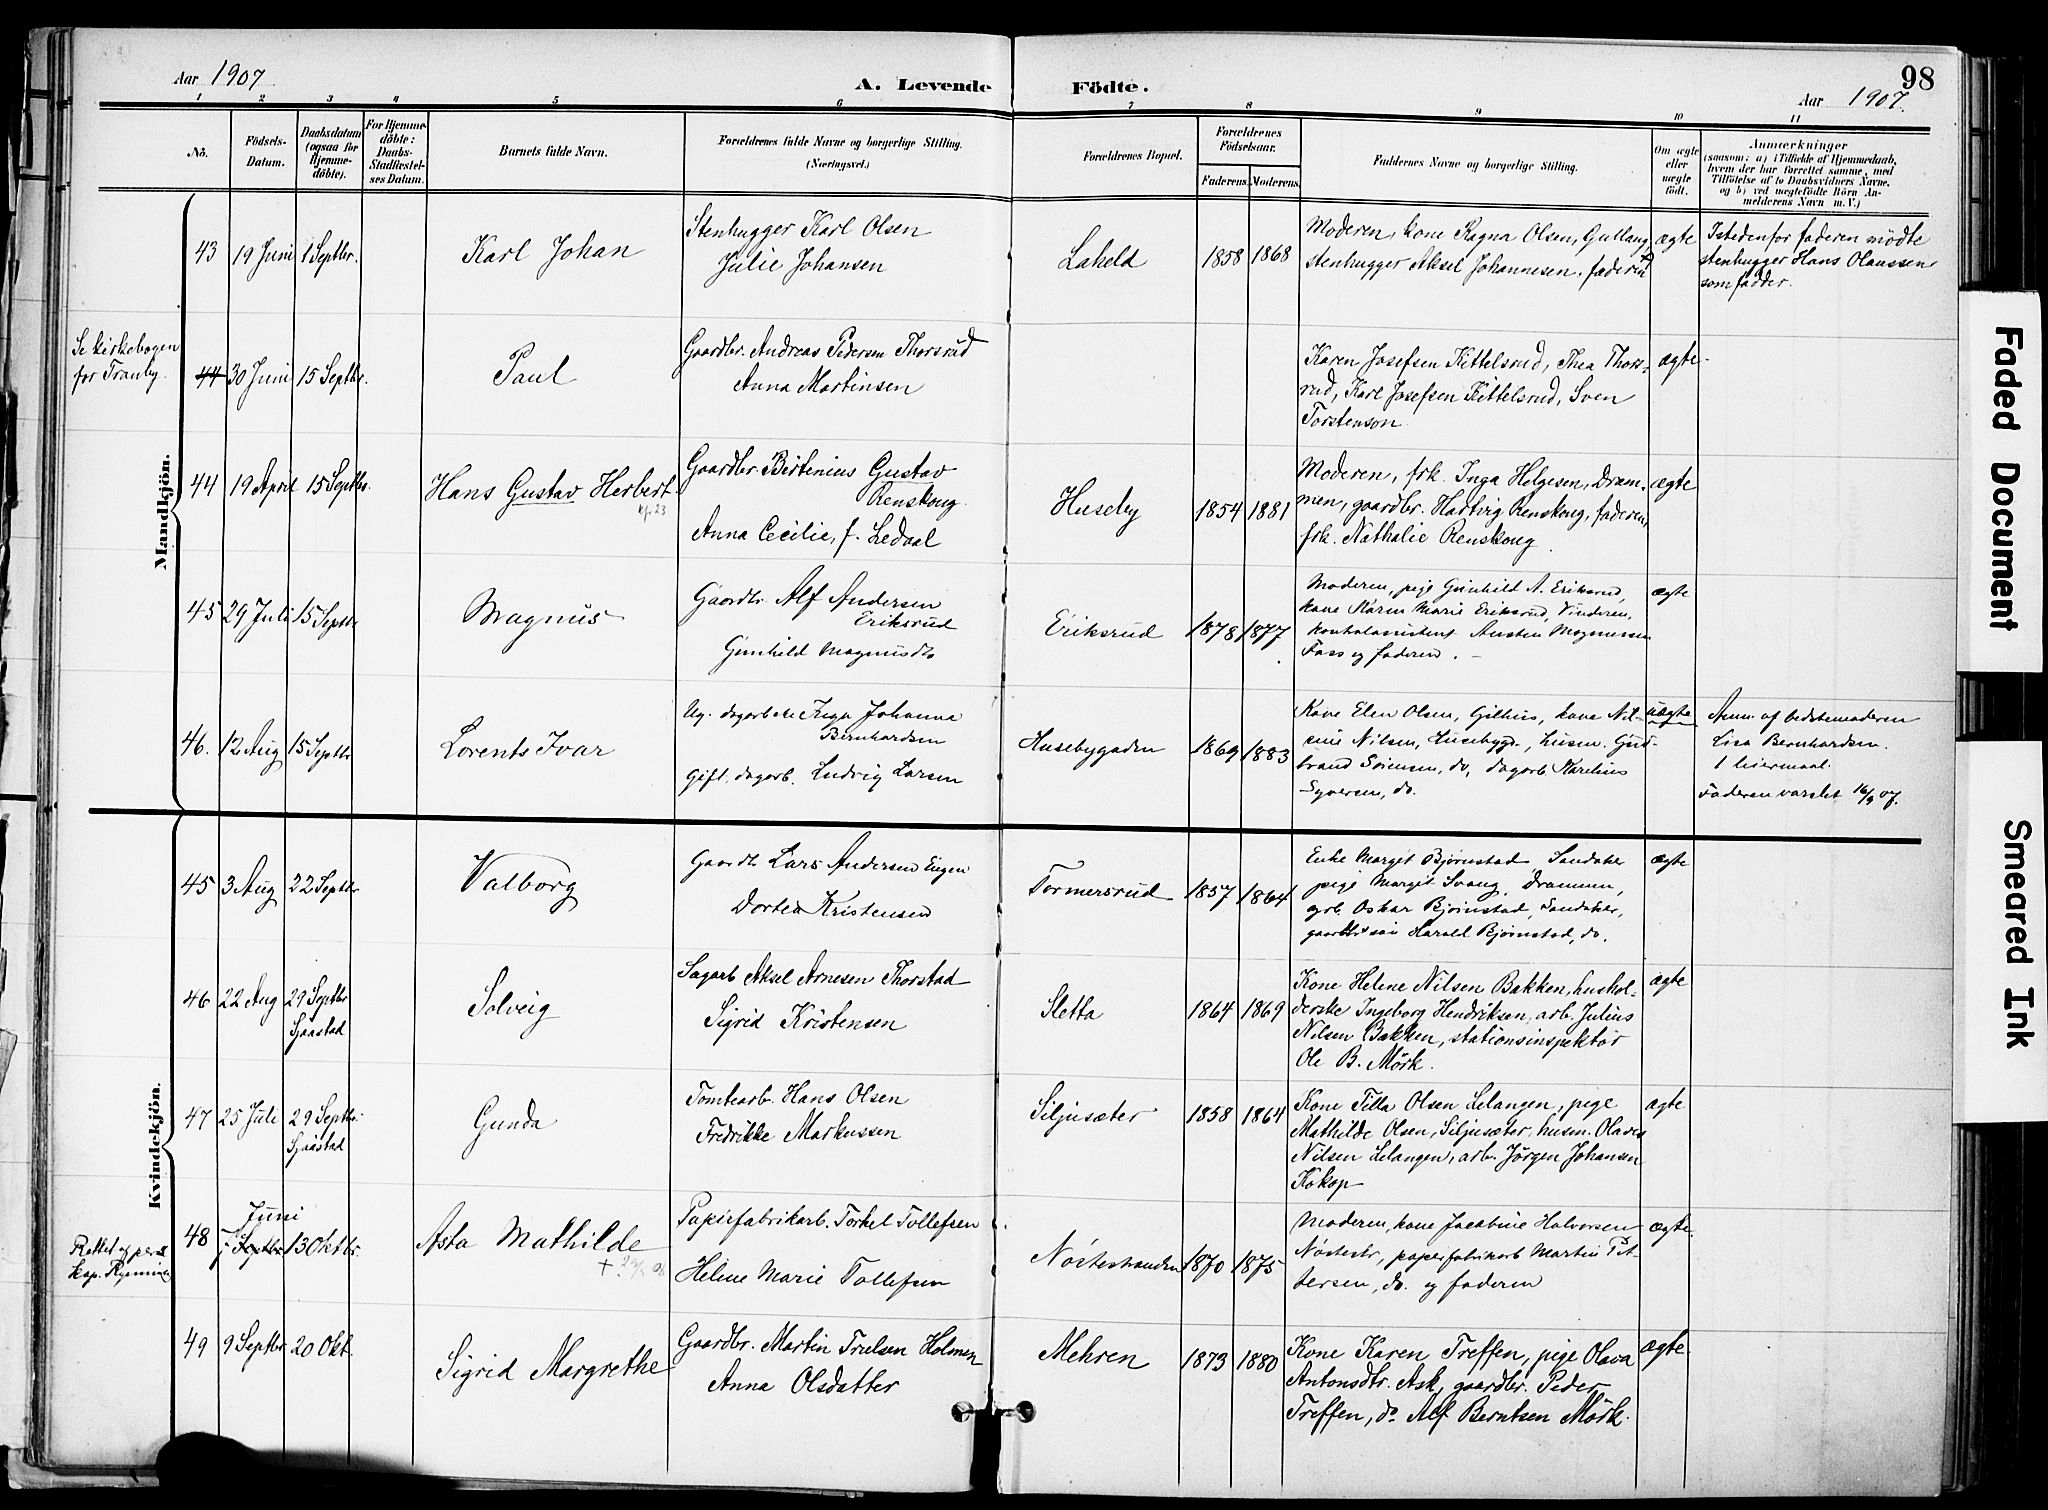 98
Aar 1907
A. Levende Födte.
Aar 1907.
1 2 3 4 5 6 7 8 9 10 11
No.
Födsels-
Datum.
Daabsdatum
(ogsaa for
Hjemme-
döbte).
For Hjemme-
döbte:
Daabs-
Stadfæstel-
ses Datum.
Barnets fulde Navn.
Forældrenes fulde Navne og borgerlige Stilling.
(Næringsvei.)
Forældrenes Bopæl.
Forældrenes
Födselsaar.
Faderens. Moderens.
Faddernes Navne og borgerlige Stilling.
Om ægte
eller
uægte
födt.
Anmærkninger
(saasom: a) i Tilfælde af Hjemmedaab,
hvem der har forrettet samme, med
Tilföielse af to Daabsvidners Navne,
og b) ved uægtefödte Börn An-
melderens Navn m. V.)
Mandkjön.
43 19 Juni 1 Septbr. Karl Johan
Stenhugger Karl Olsen
Julie Johansen
Laheld 1858 1868
Moderen, kone Ragna Olsen, Gullaug
stenhugger Aksel Johannesen. faderen
ægte
Istedenfor faderen mödte
stenhugger Hans Olaussen
som fadder.
Se kirkebogen
for Tranby.
44 30 Juni 15 Septbr. Paul
Gaardbr. Andreas Pedersen Thorsrud
Anna Martinsen
Karen Josefsen Kittelsrud, Thea Thors-
rud, Karl Josefsen Kittelsrud, Sven
Torstenson
ægte.
44 19 April 15 Septbr. Hans Gustav Herbert
Gaardbr. Bertenius Gustav
Renskoug.
Anna Cecilie, f. Ledaal
Huseby 1854 1881
Moderen, frk. Inga Helgesen, Dram-
men, gaardbr. Hartvig Renskoug, faderen,
frk. Nathalie Renskoug.
ægte
45 29 Juli 15 Septbr Magnus
Gaardbr. Alf Andersen
Eriksrud
Gunhild Magnusdtr
Eriksrud 1878 1877
Moderen, pige Gunhild A. Eriksrud,
kone Karen Marie Eriksrud, Vinderen,
Magnussen
Foss og faderen.
ægte
46. 12 Aug 15 Septbr Lorents Ivar
Ug. Inga Johanna
Bernhardsen
Gift. dagarb. Ludvig Larsen
Husebygaden 1869 1883
Kone Elen Olsen, Gilhus, kone Nil-
sine Nilsen, Husebygd., husm. Gud-
brand Sörensen, do, dagarb Karelius
Syversen, do.
uægte
Anm. af bedstemoderen
Lisa Bernhardsen.
1 leiermaal.
Faderen varslet 16/9 07.
Kvindekjön.
45 3 Aug 22 Septbr Valborg
Gaardbr Lars Andersen Eugen
Dortea Kristensen
Tormersrud 1857 1864
Enke Margit Bjørnstad Sandaker
pige Margit Svang, Drammen,
grb. Oskar Bjørnstad, Sandaker,
Harald Bjørnstad, do.
ægte
46 22 Aug 29 Septbr
Sjaastad
Solveig
Sagarb Aksel Arnesen Thorstad
Sigrid Kristensen
Sletta 1864 1869
Kone Helene Nilsen Bakken, hushol-
derske Ingeborg Hendriksen, arb. Julius
Nilsen Bakken, stationsinspektör
Ole B. Mörk.
ægte
47 25 Juli 29 Septbr.
Sjaastad
Gunda
Tomtearb. Hans Olsen
Fredrikke Markussen
Siljusæter 1858 1864
Kone Tilla Olsen Lelangen, pige
Mathilde Olsen, Siljusæter, husm. Olaves
Nilsen Lelangen, arb. Jörgen Johansen
Kokop
ægte
Rettet
48 Juni
7 Septbr 13 Oktbr. Asta Mathilde
Papirfabrikarb. Torkel Tollefsen
Helene Marie Tollefsen
Nöstestranden 1870 1875
Moderen, kone Jacobine Halvorsen
Nöstestr, papirfabrikarb Martin Pet-
tersen, do. og faderen
ægte.
49 9 Septbr 20 Okt. Sigrid Margrethe
Gaardbr. Martin Trulsen Holmen
Anna Olsdatter
Mehren 1873 1880
Kone Karen Treffen, pige Olava
Antonsdtr. Ask, gaardbr. Peder
Treffen, do. Alf Berntsen Mörk.
ægte.
Faded Document
Smeared Ink